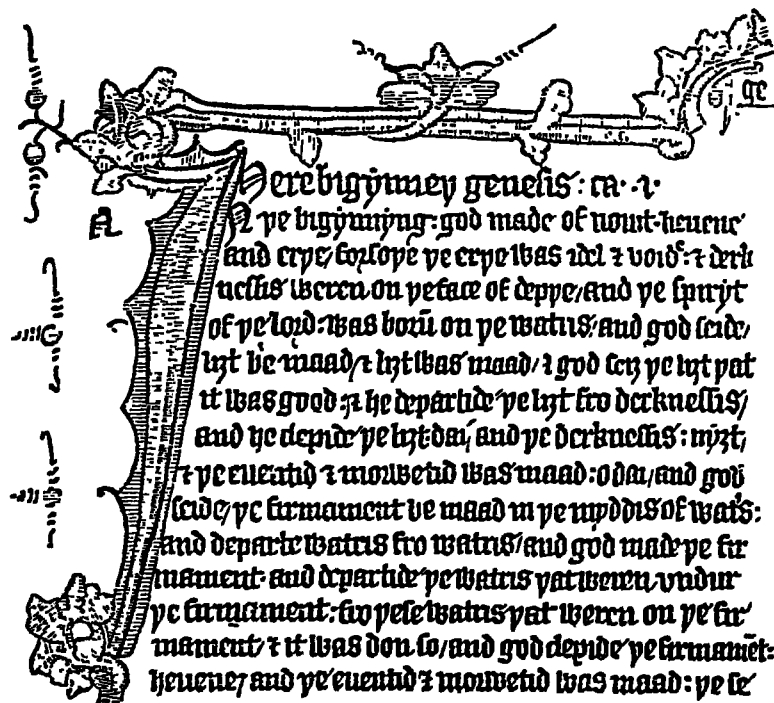 ge
Here bigynneþ genesis: ca. i.
In þe bigynnyng: god made of nouȝt heuene
and erþe/ forsoþe þe erþe was idel ⁊ voide: ⁊ derk
nessis weren on þe face of depþe/ and þe spiryt
of þe lord: was borū on þe watris/ and god seide/
liȝt be maad/ ⁊ liȝt was maad/ ⁊ god seiȝ þe liȝt þat
it was good: ⁊ he departide þe liȝt fro derknessis/
and he clepide þe liȝt: dai/ and þe derknessis: nyȝt/
⁊ þe euentid ⁊ morwetid was maad: o dai/ and god
seide/ þe firmament be maad in þe myddis of wat's:
and departe watris fro watris/ and god made þe fir
mament and departide þe watris þat weren vndur
þe firmament: fro þese watris þat weren on þe fir
mament/ ⁊ it was don so/ and god clepide þe firmamēt:
heuene/ and þe euentid ⁊ morwetid was maad: þe se